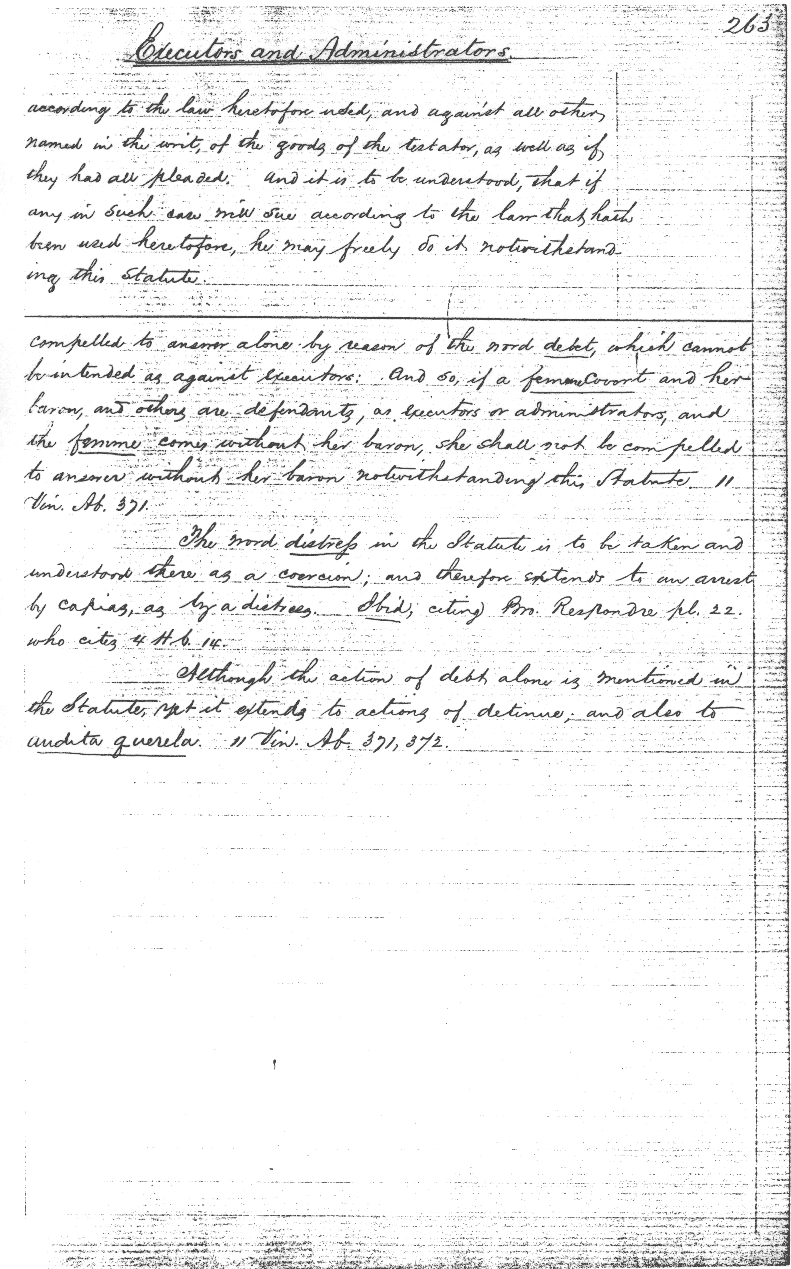 263
Executors and Administrators.
according to the law heretofore used, and against all others
named in the writ, of the goods of the testator, as well as if
they had all pleaded. And it is to be understood, that if
any in such case will sue according to the law that hath
been used heretofore, he may freely do it notwithstand-
ing this Statute.
compelled to answer alone by reason of the word debt, which cannot
be intended as against executors: And so, if a femme Covert and her
baron, and others are defendants, as executors or administrators, and
the femme comes without her baron, she shall not be compelled
to answer without her baron notwithstanding this Statute. 11
Vin. Ab. 371.
The word distress in the Statute is to be taken and
understood there as a coercion; and therefore extends to an arrest
by capias, as by a distress. Ibid; citing Bro. Respondre pl. 22.
who cites 4 H. 6. 14.
Although the action of debt alone is mentioned in
the Statute, yet it extends to actions of detinue; and also to
audita querela. 11 Vin. Ab. 371, 372.